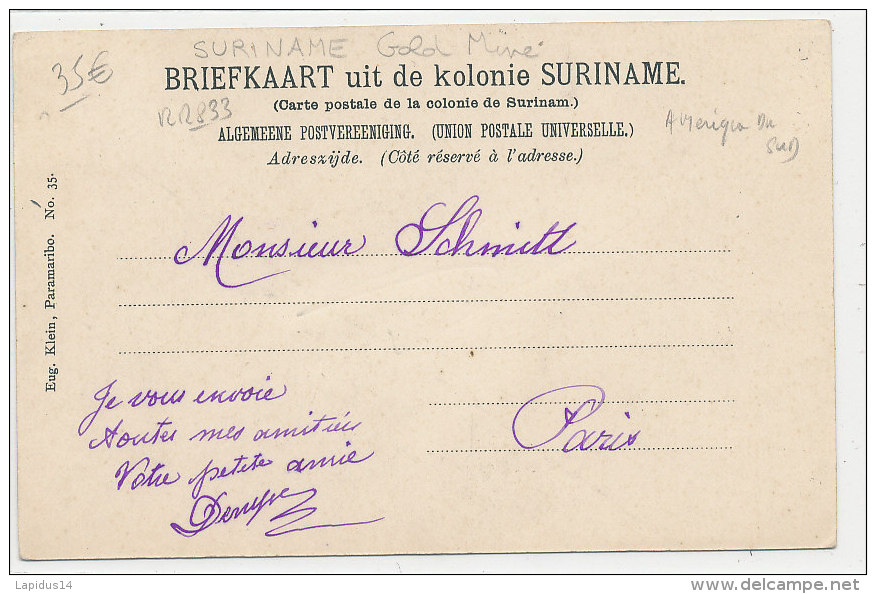 SURINAME Gold Mine
35€
BRIEFKAART uit de kolonie SURINAME.
(Carte postale de la colonie de Surinam.)
RR833
ALGEMEENE POSTVEREENIGING. (UNION POSTALE UNIVERSELLE.)
Adreszijde. (Côté réservé à l'adresse.)
Du
SuD
Eug. Klein, Paramaribo. No. 35.
Monsieur Schmitt
Je vous envoie
toutes mes amitiés
Votre petite amie
Paris
Lapidus14
delcampe.net